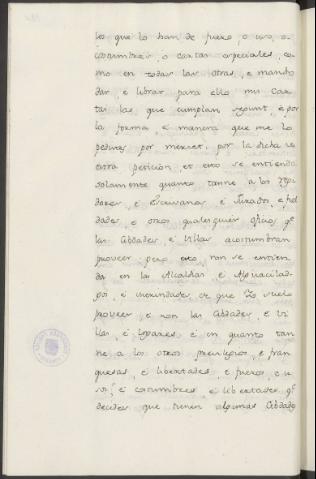 los que lo han de fuero, o uso, o
costumbre, o cartas especiales, co-
mo en todas las otras, e mando
dar, e librar para ello mis Car-
tas las que cumplan, segunt, e por
la forma, e manera que me lo
pedistes por merced, por la dicha vr̃a
otra peticion, et esto se entienda
solamente quanto tanne a los Regi-
dores, e Escrivanos, e Jurados, e fiel-
dades, e otros qualesquier oficios q̃
las Cibdades, e Villas acostumbran
proveer pero esto, non se entien-
da en las Alcaldias, e Alguaciladgos
e merindades de que Yo suelo
proveer, e non las Cibdades, e Vi-
llas, e Logares, e en quanto tan-
ne a los otros previlegios, e fran-
quesas, e libertades, e fueros, e u-
sos, e costumbres, e libertades q̃
decides que tienen algunas Cibdades